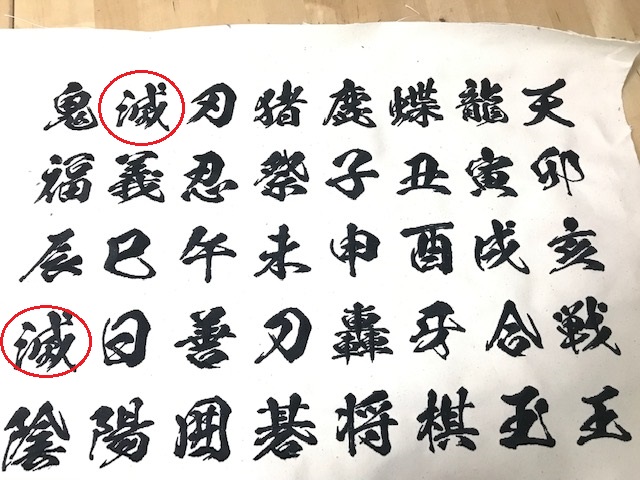 鬼滅刃猪鹿蝶龍天
福義忍祭子丑寅卯
辰巳午未申酉戌亥
滅日善刀轟牙合戦
陰陽囲碁将棋玉王